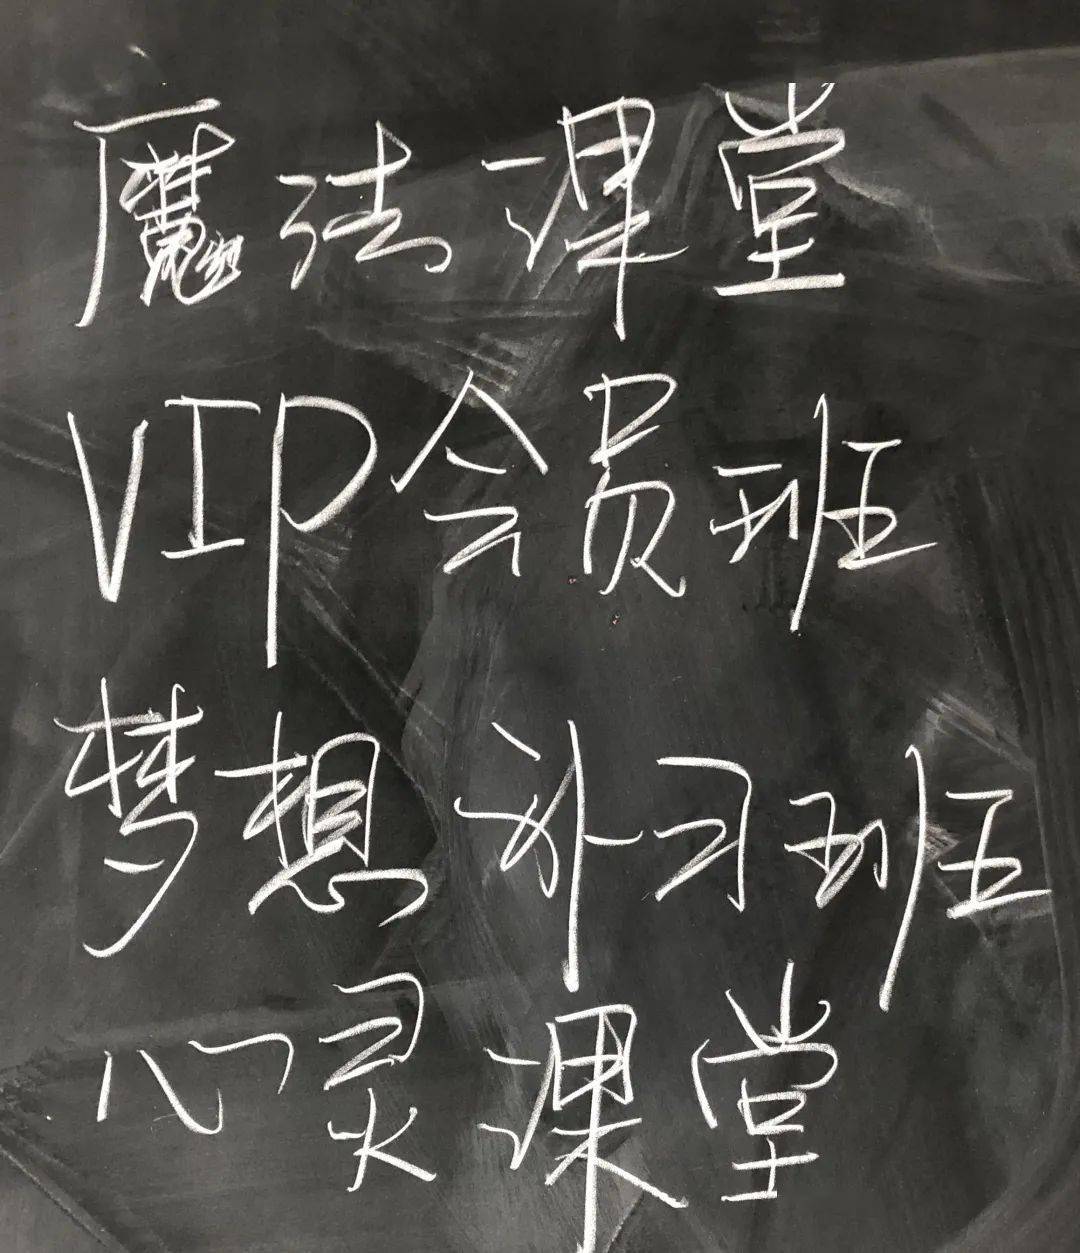 魔法课堂
VIP会员班
梦想补习班
心灵课堂